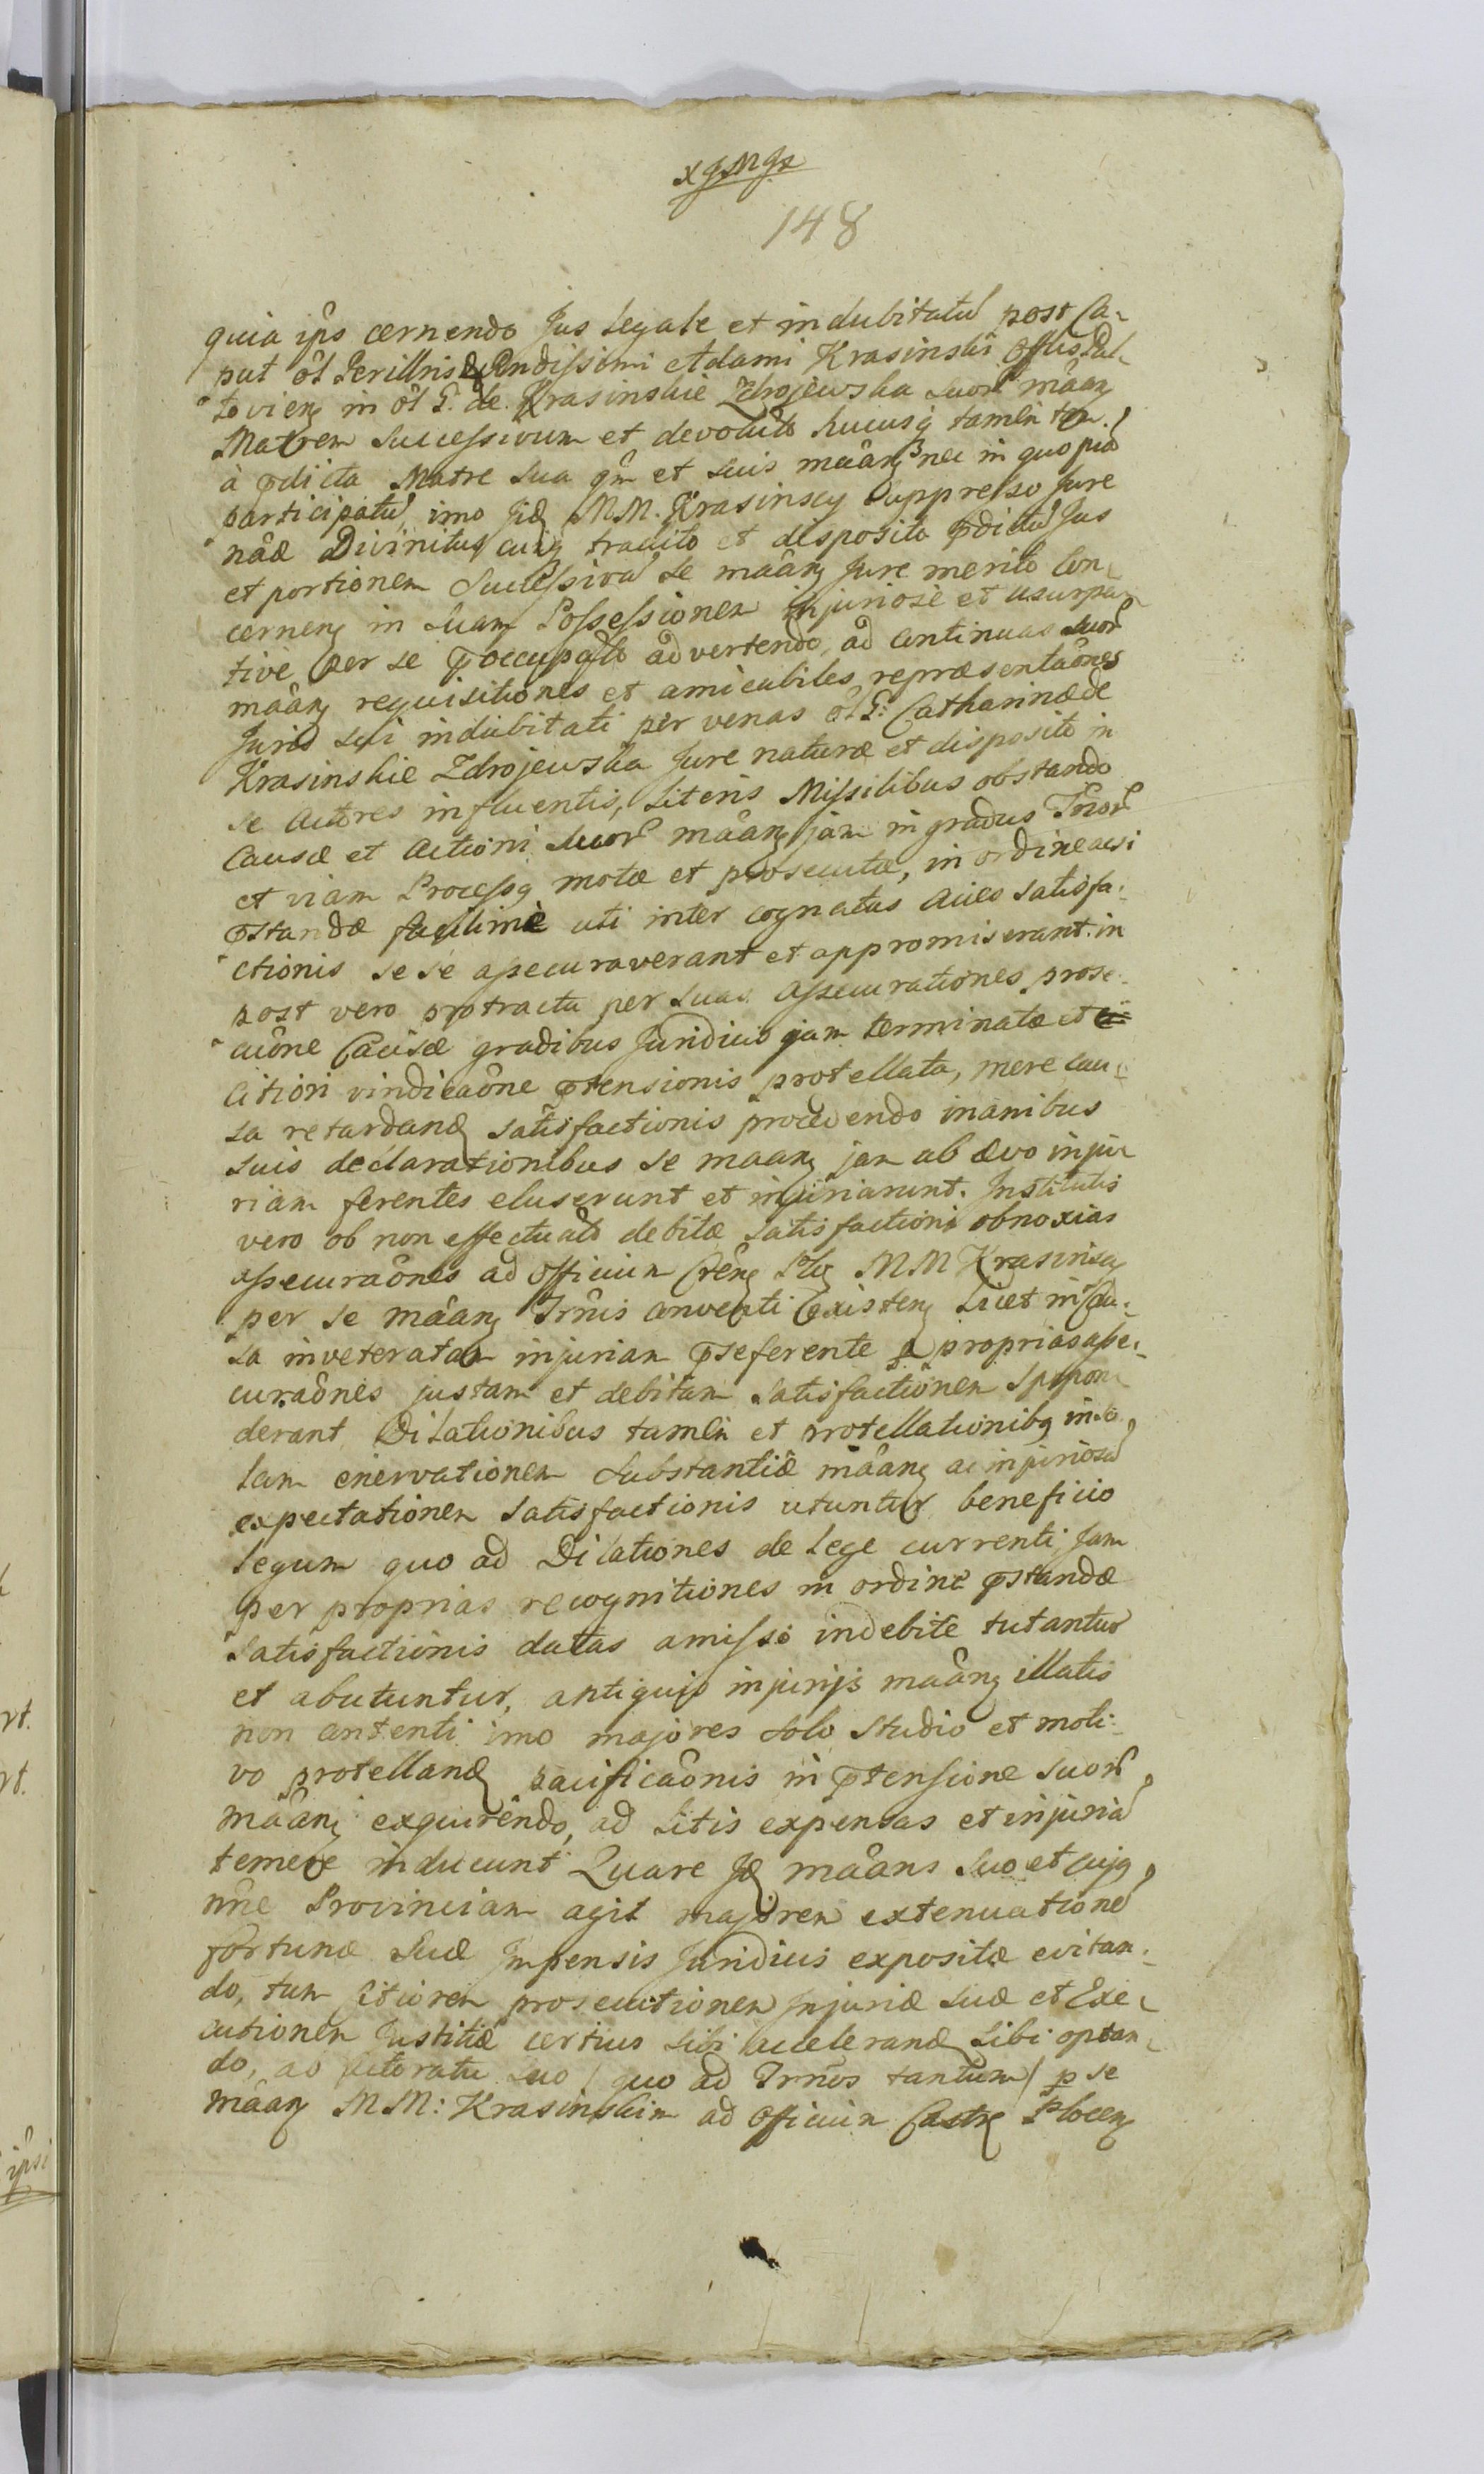 148
quia ip̂s cernendo Jus Legale et indubitatũ post Ca-
put ol̂ Perillris & Rndissimi Adami Krasinski Offlis Pul-
toviens̨ in ol̂ G. de Krasinskie Zdrojewska Suor̃ mâanţ
Matrem Successivum et devolutũ hucusq̨ tamen
à p̄dicta Matre Sua qm̂ et Suis mâanţ nec in quopiã
participatũ, imo Jid̨ M.M. Krasinscy Suppresso Jure
nâæ Divinitus cuiq̨ tradito et disposito p̄dictũ Jus
et portionem Successivã Se mâanţ Jure merito Con-
cernenţ in Suam Possessionem injuriose et usurpa-
tive per se p̄occupatã advertendo, ad continuas Suor̃
mâanţ requisitiones et amicabiles repræsentaônes
Juris Sui indubitati per venas ol̂ G: Catharinæ de
Krasinskie Zdrojewska Jure naturæ et disposito in
se Actores influentis, Literis Missilibus obstando
Causæ et Actioni Suor̃ mâanţ jam in gradus Tr̂nor̃
et viam Processq̨ motæ et prosecutæ, in ordine acsi
p̄standæ facilime uti inter cognatus Aues Satisfa-
ctionis se se assecuraverant et appromiserant. in
post vero protracta per suas Assecurationes prose-
cuône Causæ gradibus Juridicis jam terminatæ et
Citiori vindicaône p̄tensionis protellata, mere cau-
sa retardand̨ satisfactionis procedendo inanibus
suis declarationibus se maanţ jam ab ævo inju-
riam ferentes eluserunt et injuriarunt. Institutis
vero ob non effectuatas debitæ Satisfactioni obnoxias
assecuraônes ad officium M M Krasinscy
per se mâanţ Tr̂nis conventi Existenţ Licet in Cau-
sa inveteratam injuriam p̄seferente propriasasse-
curaônes justam et debitam Satisfactionem Spopon-
derant Dilationibus tamen et protellationibq̨ in
tam enervationem Substantiæ mâanţ ac injuriosã
expectationem Satisfactionis utuntur beneficio
Legum quo ad Dilationes de Lege currenti, Jam
per proprias recognitiones in ordine p̄standæ
Satisfactionis datas amisso indebite tutantur
et abutuntur, antiquis injurijs maânţ illatis
non contenti imo majores solo studio et moti-
vo protelland̨ pacificaônis in p̄tensione Suor̃
mâanţ exquirendo, ad Litis expensas et injuriã
temere inducunt Quare Jd̨ mâans suo et cujq̨
nn̂e Provinciam agit majorem extenuationẽ
fortunæ Suæ Impensis Juridicis expositæ evitan-
do, tum Citiorem prosecutionem Injuriæ suæ et Exe-
cutionem Justitiæ certius sibi accelerand̨ Sibi optan-
do, ao Actoratu suo / quo ad Tr̂nos tantum / p se
mâanţ M M: Krasinskim ad Officium Castr̨ Plocenţ